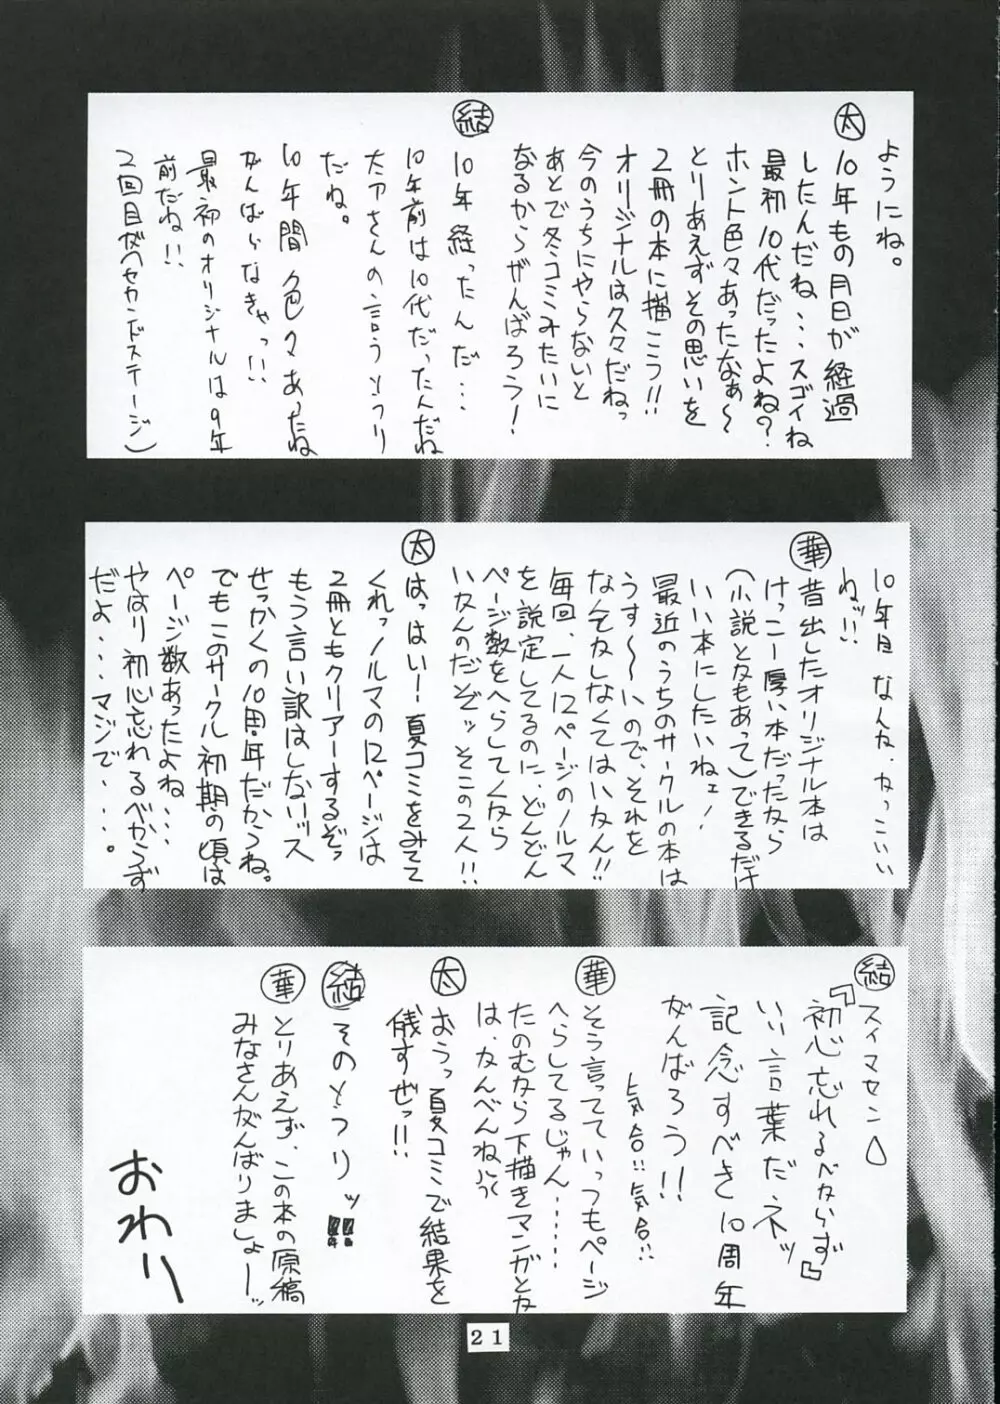 ようにね。
太
10年もの月日が経過
したんだね、、、スゴイね
最初10代だったよね?
ホント色々あったなぁ～
とりあえずその思いを
2冊の本に描こう!!
オリジナルは久々だねっ
今のうちにやらないと
あとで冬コミみたいに
なるからがんばろう!
結
10年経ったんだ・・・
10年前は10代だったんだね
太アさんの言うとうり
だね。
10年間色々あったね
がんばらなきゃっ!!
最初のオリジナルは9年
前だね!!
2回目がセカンドステージ)
10年目なんな、なっこいい
ねッ!!
華
昔出したオリジナル本は
けっこー厚い本だったなら
(小説となもあって)できるだけ
いい本にしたいねェ!
最近のうちのサークルの本は
うす～～いので、それを
なんとなしなくてはいなん!!
毎回、一人12ページのノルマ
を設定してるのに、どんどん
ページ数をへらしてくなら
いなんのだぞッそこの2人!!
太
はっはい!夏コミをみてて
くれっノルマの12ページは
2冊ともクリアーするぞっ
もう言い訳はしないッス
せっかくの10周年だからね。
でもこのサークル初期の頃は
ページ数あったよね、、、
やはり初心忘れるべからず
だよ、、、マジで、、、。
結
スイマセン
『初心忘れるべならず』
いい言葉だネッ
記念すべき10周年
がんばろう!!
気合!!気合!!
華
そう言っていっつもページ
へらしてるじゃん・・・・・・
たのむなら下描きマンガとな
は、なんべんね
太
おうっ夏コミで結果を
残すぜっ!!
結
そのとうりッ!!
華
とりあえず、この本の原稿
みなさんがんばりましょーッ
おわり
21